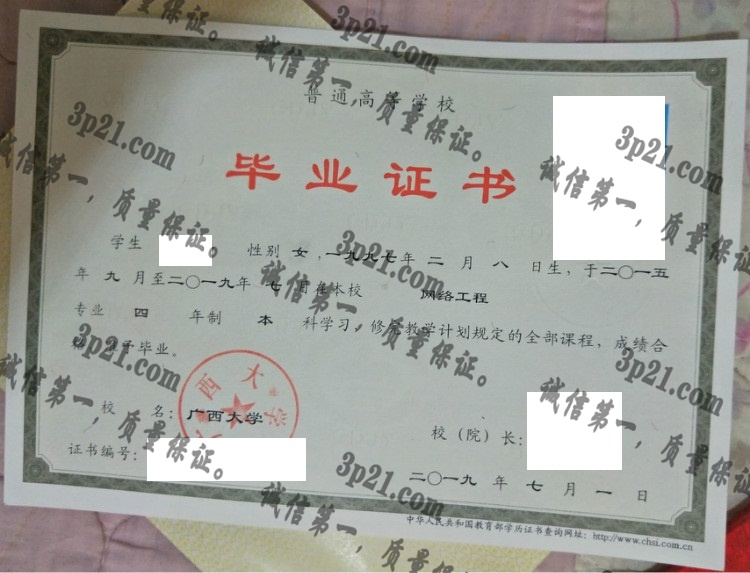 普通高等学校
毕业证书
学生 性别 女，一九九七年 二 月 八 日生，于二〇一五
年 九 月至二〇一九年 七 月在本校 网络工程
专业 四 年制 本 科学习，修完教学计划规定的全部课程，成绩合
格，准予毕业。
广西大学
校 名：广西大学
校（院）长：
证书编号：
二〇一九 年 七 月 一 日
中华人民共和国教育部学历证书查询网址：http://www.chsi.com.cn
3p21.com
诚信第一，质量保证。
3p21.com
诚信第一，质量保证。
3p21.com
诚信第一，质量保证。
3p21.com
诚信第一，质量保证。
3p21.com
诚信第一，质量保证。
3p21.com
诚信第一，质量保证。
3p21.com
诚信第一，质量保证。